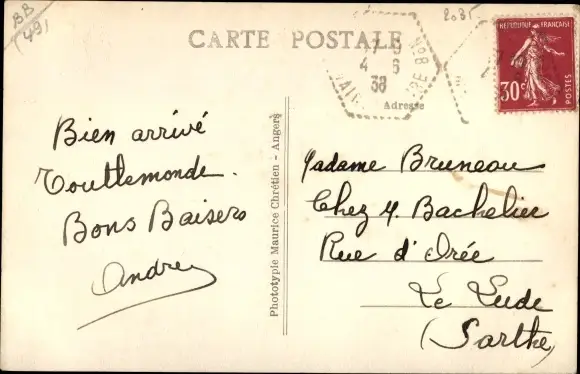 BB
(49)
2035
CARTE POSTALE
Adresse
4 6
38
N°8
RÉPUBLIQUE FRANÇAISE
30c
POSTES
Bien arrivé
Touttemonde.
Bons Baisers
André
Phototypie Maurice Chrétien - Angers
Madame Bruneau
Chez M. Bachelier
Rue d'Orée
Le Lude
(Sarthe)